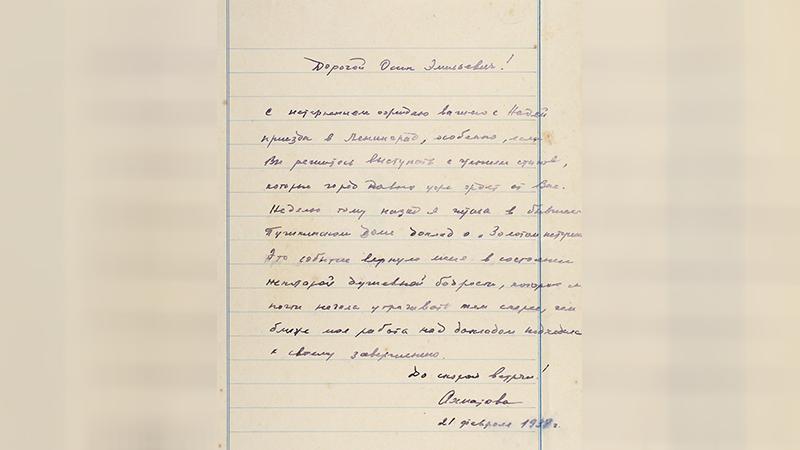 Дорогой Осип Эмильевич!
С нетерпением ожидаю вашего с Надей
приезда в Ленинград, особенно, если
Вы решитесь выступать с чтением стихов,
которые город давно уже ждет от Вас.
Неделю тому назад я читала в бывшем
Пушкинском Доме доклад о „Золотом петушке
Это событие вернуло меня в состояние
некоторой душевной бодрости, которое я
почти начала утрачивать тем скорее, чем
ближе моя работа над докладом подходила
к своему завершению.
До скорой встречи!
Ахматова
21 февраля г.